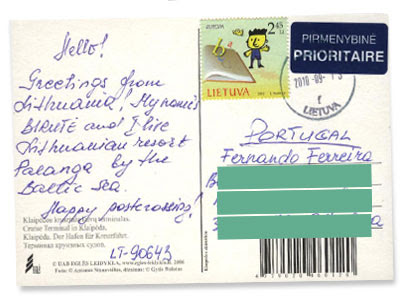 Hello!
Greetings from
Lithuania, My name is
BIRUTĖ and I live
Lithuanian resort
Palanga by the
Baltic Sea.
Happy postcrossing!
Klaipėdos kruizinių laivų terminalas.
Cruise Terminal in Klaipėda.
Klaipėda. Der Hafen für Kreuzfahrt.
Терминал круизных судов.
LT-90643
© UAB EGLĖS LEIDYKLA, 2006
EUROPA
2,45
Lt
LIETUVA
PIRMENYBINĖ
PRIORITAIRE
2010-09-13
LIETUVA
PORTUGAL
Fernando Ferreira